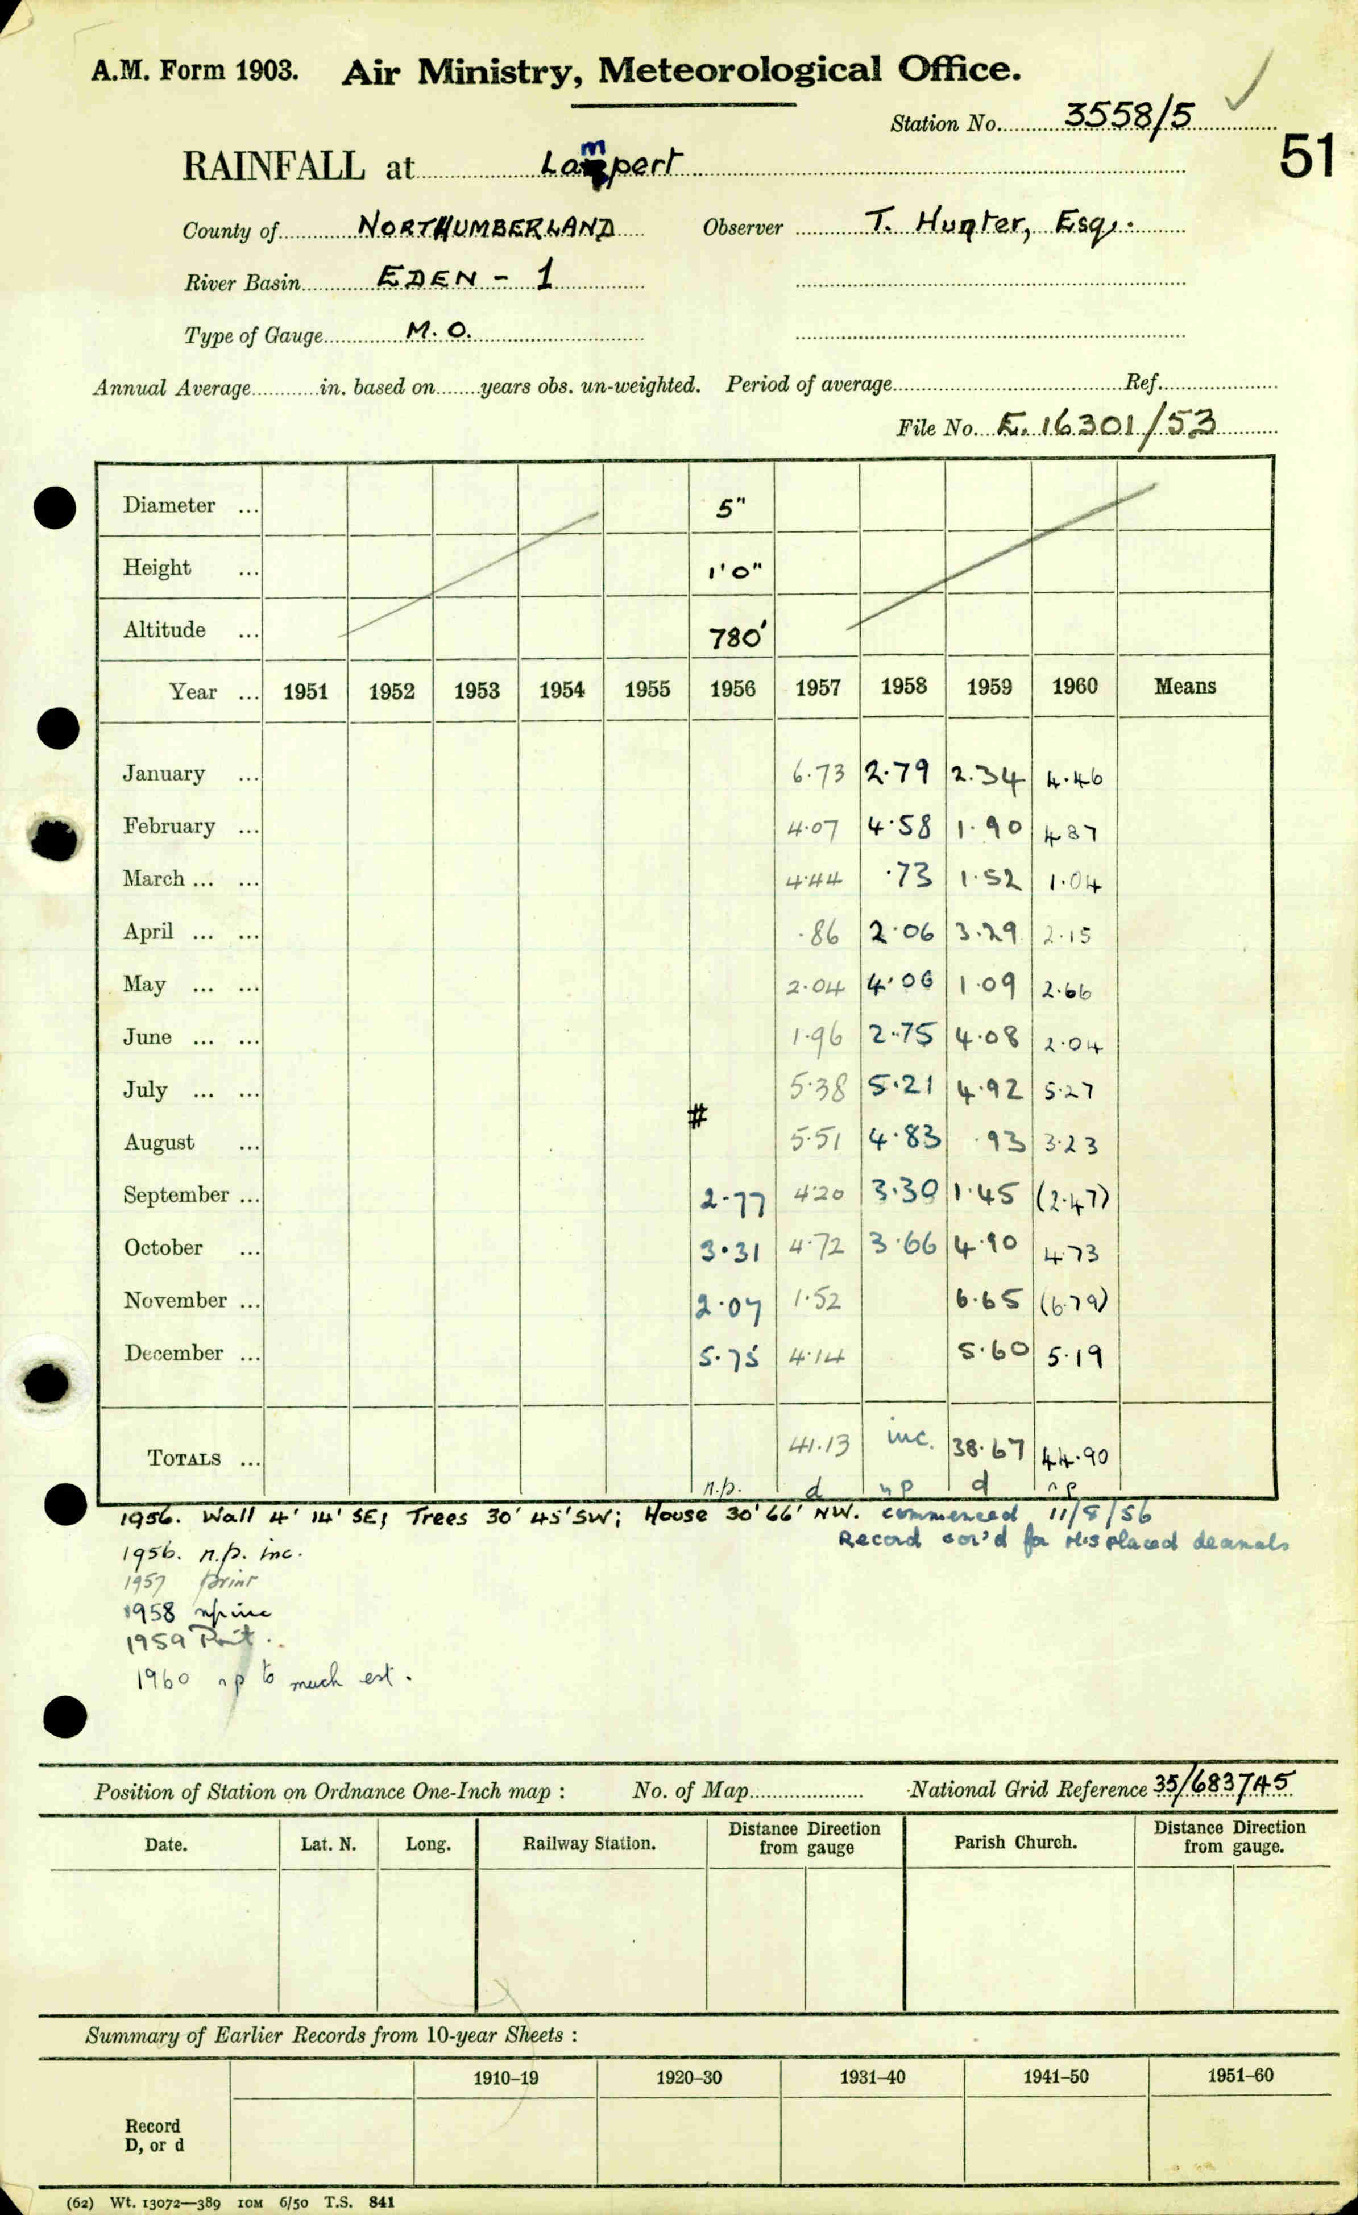 A.M. Form 1903. Air Ministry, Meteorological Office.
Station No. 3558/5
51
RAINFALL at Lampert
County of NORTHUMBERLAND Observer T. Hunter, Esq.
River Basin EDEN - 1
Type of Gauge M.O.
Annual Average in. based on years obs. un-weighted. Period of average Ref.
File No. E. 16301/53
Diameter ... 5"
Height ... 1'0"
Altitude ... 780'
Year ... 1951 1952 1953 1954 1955 1956 1957 1958 1959 1960 Means
January ... 6.73 2.79 2.34 4.46
February ... 4.07 4.58 1.90 4.87
March ... ... 4.44 .73 1.52 1.04
April ... ... .86 2.06 3.29 2.15
May ... ... 2.04 4.06 1.09 2.66
June ... ... 1.96 2.75 4.08 2.04
July ... ... 5.38 5.21 4.92 5.27
#
August ... 5.51 4.83 .93 3.23
September ... 2.77 4.20 3.30 1.45 (2.47)
October ... 3.31 4.72 3.66 4.90 4.73
November ... 2.07 1.52 6.65 (6.79)
December ... 5.75 4.14 5.60 5.19
TOTALS ... 41.13 inc. 38.67 44.90
n.p. d np d np
1956. Wall 4' 14' SE; Trees 30' 45' SW; House 30' 66' NW. commenced 11/8/56
Record cor'd for Misplaced decimals
1956. n.p. inc.
1957 print
1958 np inc
1959 Print.
1960 np to much est.
Position of Station on Ordnance One-Inch map : No. of Map National Grid Reference 35/683745
Date. Lat. N. Long. Railway Station. Distance from Direction gauge Parish Church. Distance from Direction gauge.
Summary of Earlier Records from 10-year Sheets :
1910–19 1920–30 1931–40 1941–50 1951–60
Record
D, or d
(62) Wt. 13072—389 10M 6/50 T.S. 841